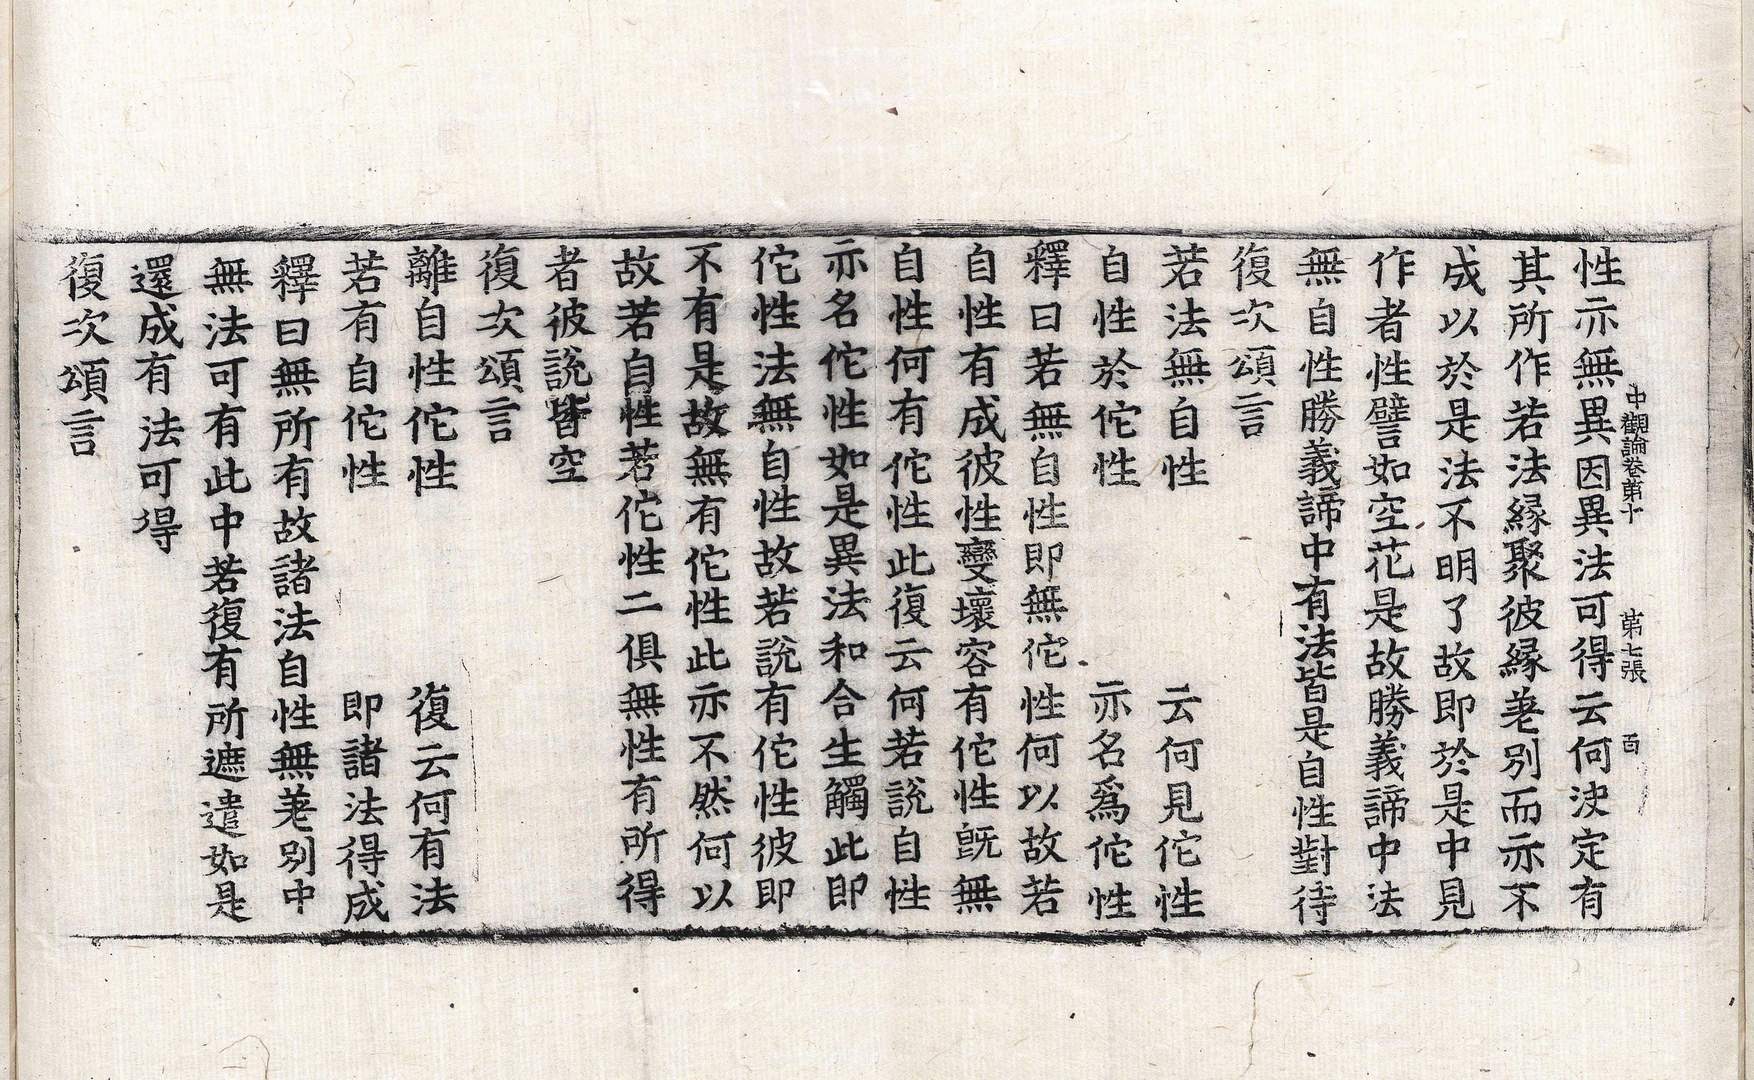 中觀論卷第十　第七張　百
性亦無異因異法可得云何決定有
其所作若法緣聚彼緣差別而亦不
成以於是法不明了故即於是中見
作者性譬如空花是故勝義諦中法
無自性勝義諦中有法皆是自性對待
復次頌言
若法無自性　云何見佗性
自性於佗性　亦名爲佗性
釋曰若無自性即無佗性何以故若
自性有成彼性變壞容有佗性旣無
自性何有佗性此復云何若說自性
亦名佗性如是異法和合生觸此即
佗性法無自性故若說有佗性彼即
不有是故無有佗性此亦不然何以
故若自性若佗性二俱無性有所得
者彼說皆空
復次頌言
離自性佗性　復云何有法
若有自佗性　即諸法得成
釋曰無所有故諸法自性無差別中
無法可有此中若復有所遮遣如是
還成有法可得
復次頌言